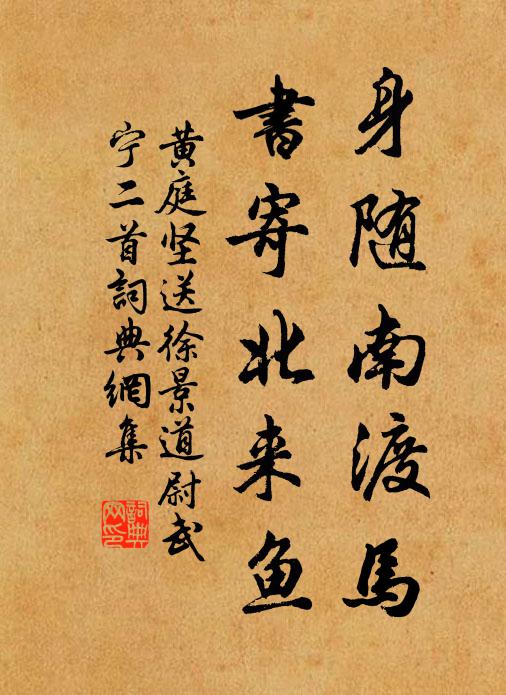 身随南渡馬
書寄北来鱼
黄庭坚送徐景道尉武
宁二首詞典網集
詞典
网印